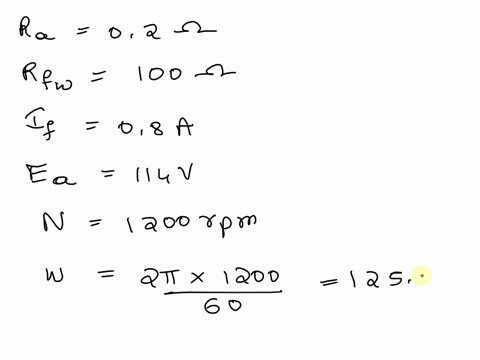 Ra = 0.2 Ω
Rfw = 100 Ω
If = 0.8 A
Ea = 114 V
N = 1200 rpm
w = 2π × 1200 / 60 = 125.